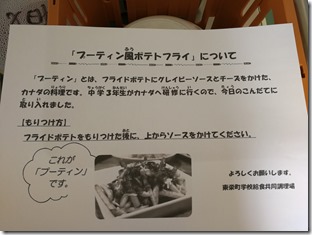 「プーティン風ポテトフライ」について
「プーティン」とは、フライドポテトにグレイビーソースとチーズをかけた、
カナダの料理です。中学3年生がカナダへ研修に行くので、今日のこんだてに
取り入れました。
【もりつけ方】
フライドポテトをもりつけた後に、上からソースをかけてください。
これが
「プーティン」
です。
よろしくお願いします。
東栄町学校給食共同調理場